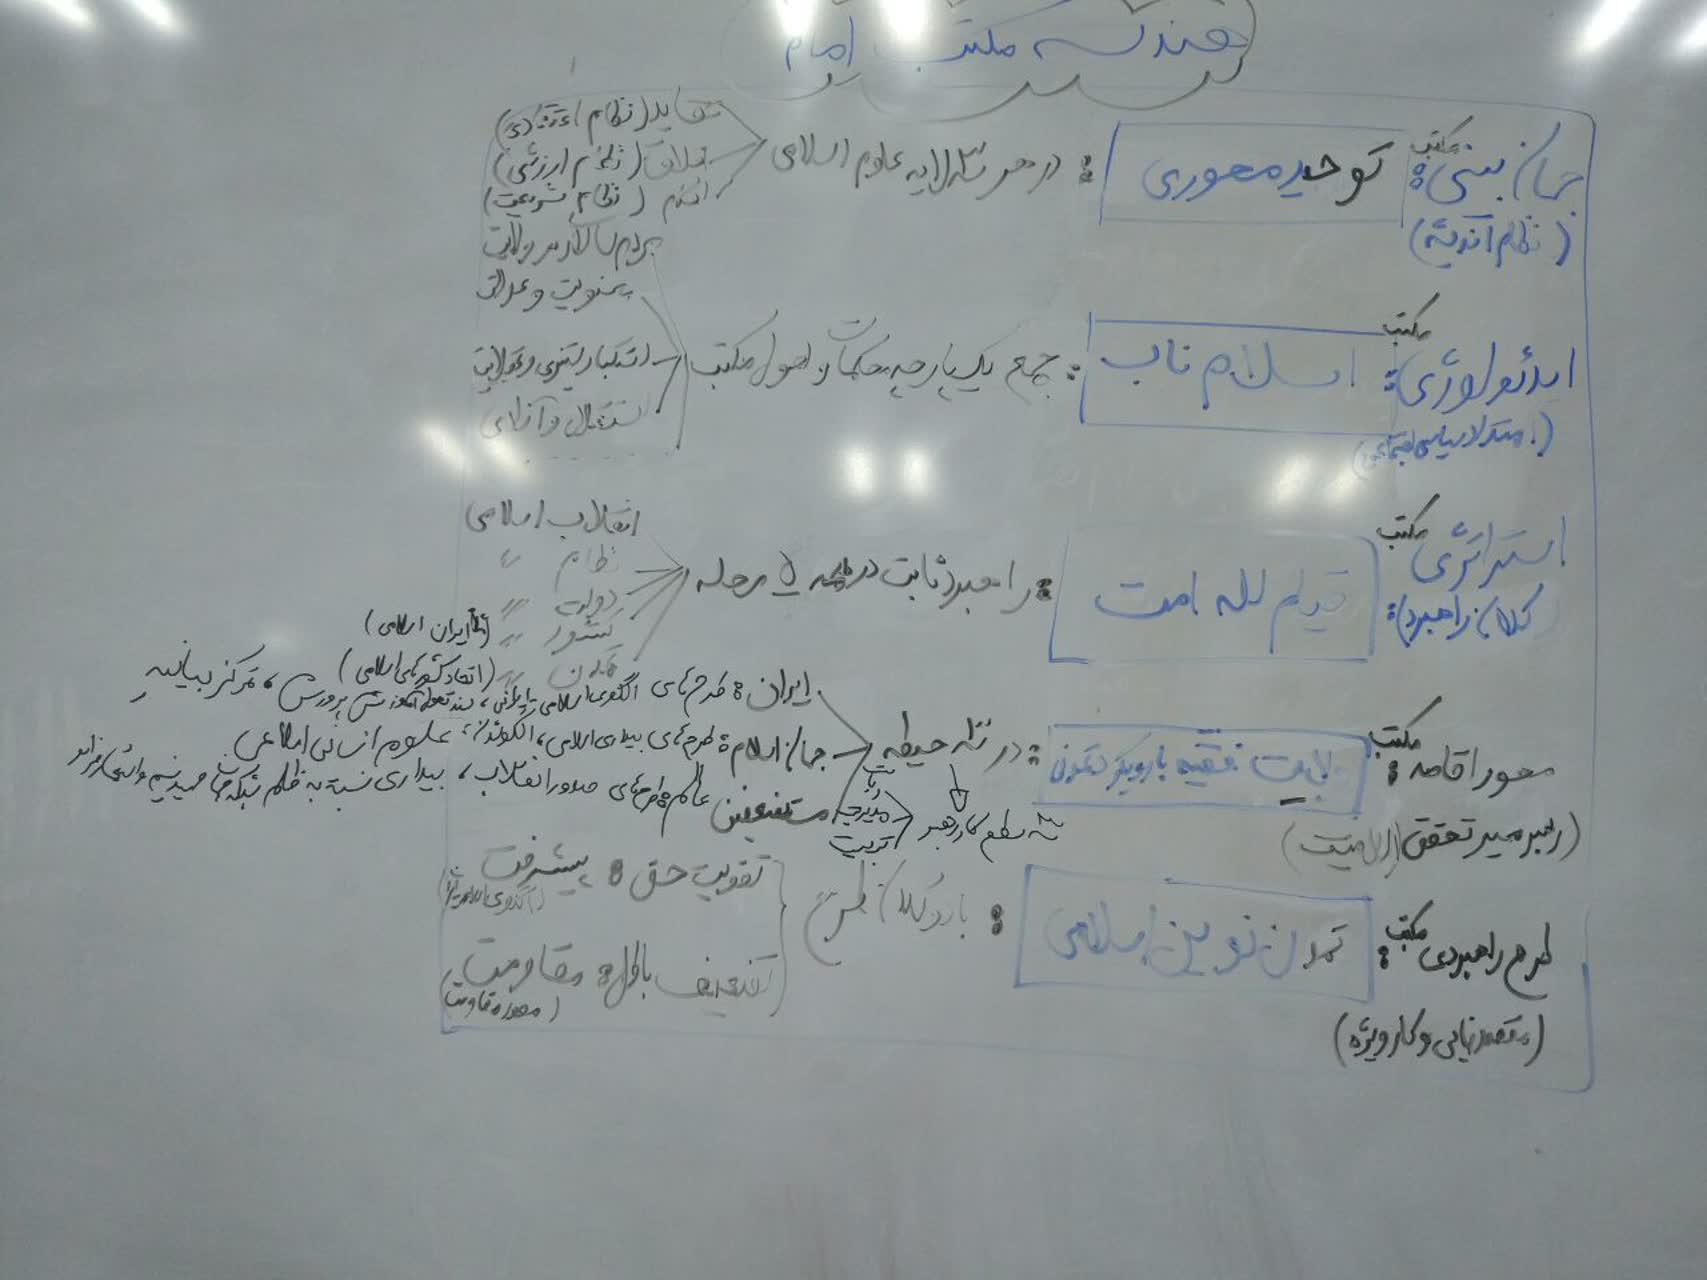 هندسه مکتب امام
جهان بینی مکتب: توحید محوری : در هر سه لایه علوم اسلامی
(نظام اندیشه)
عقاید (نظام اعتقادی)
اخلاق (نظام ارزشی)
احکام (نظام شریعت)
ایدئولوژی مکتب: اسلام ناب : جمع یک پارچه محکمات و اصول مکتب
(امتداد سیاسی اجتماعی)
مردم سالاری و ولایت
معنویت و عدالت
استکبار ستیزی و
استقلال و آزادی
استراتژی مکتب قیام لله امت : راهبرد ثابت در همه ۵ مرحله
کلان راهبرد:
انقلاب اسلامی
نظام "
دولت "
کشور " (ایران اسلامی)
تمدن " (اتحاد کشورهای اسلامی)
محور اقامه مکتب: ولایت فقیه با رویکرد تمدن : در سه حیطه
(رهبر مسیر تحقق)
ایران: طرح های الگوی اسلامی ایرانی، سند تحول آموزش پرورش، تمرکز بیانیه
جهان اسلام: طرح های بیداری اسلامی، علوم انسانی اسلامی
مستضعفین عالم: طرح های صدور انقلاب، بیداری نسبت به ظلم شبکه جهانی صهیونیسم و
سه سطح کار رهبر
مدیریت
تربیت
طرح راهبردی مکتب: تمدن نوین اسلامی : با دو کلان طرح
(مقصد نهایی و کار ویژه)
تقویت حق: پیشرفت
تضعیف باطل: مقاومت
(محور مقاومت)